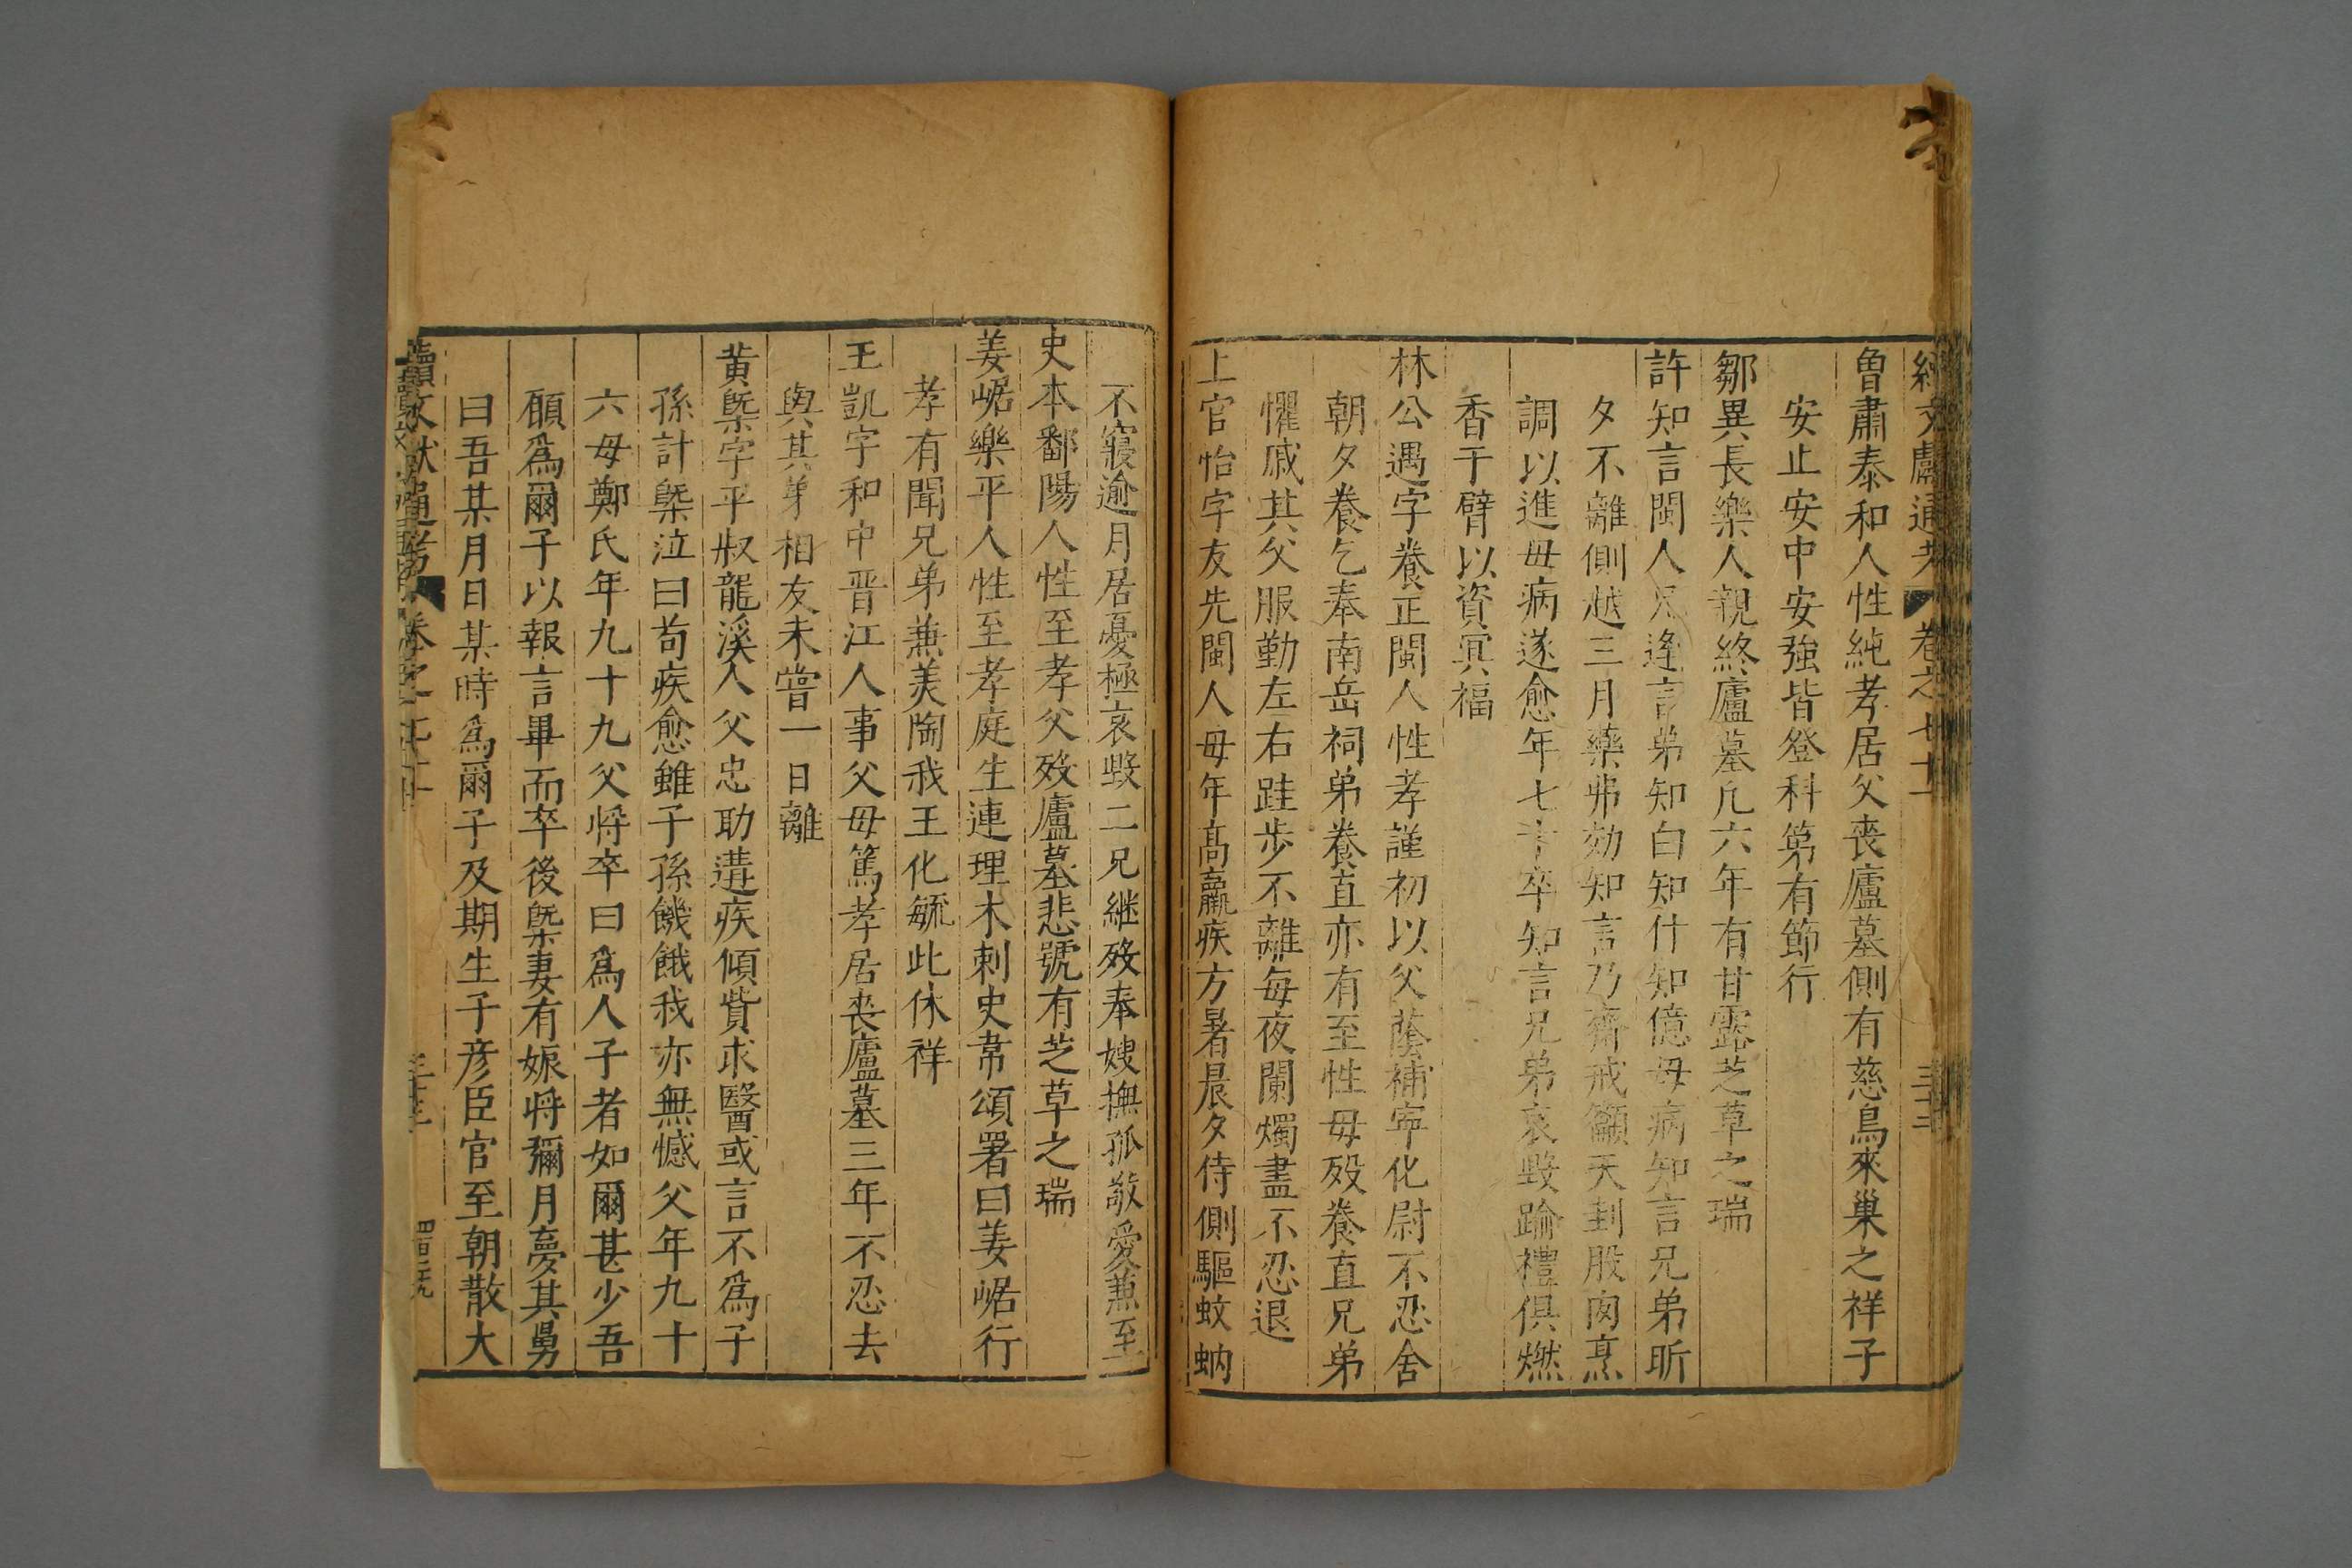 續文獻通考 卷之七十一 三十二
魯肅泰和人性純孝居父喪廬墓側有慈烏來巢之祥子
安止安中安強皆登科第有節行
鄒異長樂人親終廬墓凡六年有甘露芝草之瑞
許知言閩人兄逢言弟知白知什知億母病知言兄弟昕
夕不離側越三月藥弗効知言乃齋戒籲天刲股肉烹
調以進母病遂愈年七十卒知言兄弟哀毀踰禮俱燃
香于臂以資冥福
林公遇字養正閩人性孝謹初以父蔭補寧化尉不忍舍
朝夕養乞奉南岳祠弟養直亦有至性母歿養直兄弟
懼戚其父服勤左右跬步不離每夜闌燭盡不忍退
上官怡字友先閩人母年髙羸疾方暑晨夕侍側驅蚊蚋
不寢逾月居憂極哀毀二兄継歿奉嫂撫孤敬愛兼至
史本鄱陽人性至孝父歿廬墓悲號有芝草之瑞
姜崌樂平人性至孝庭生連理木刺史常頌署曰姜崌行
孝有聞兄弟兼美陶我王化毓此休祥
王凱字和中晋江人事父母篤孝居喪廬墓三年不忍去
與其弟相友未嘗一日離
黄槩字平叔龍溪人父忠助遘疾傾貲求醫或言不爲子
孫計槩泣曰苟疾愈雖子孫饑餓我亦無憾父年九十
六母鄭氏年九十九父将卒曰爲人子者如爾甚少吾
願爲爾子以報言畢而卒後槩妻有娠将彌月夢其舅
曰吾某月日某時爲爾子及期生子彦臣官至朝散大